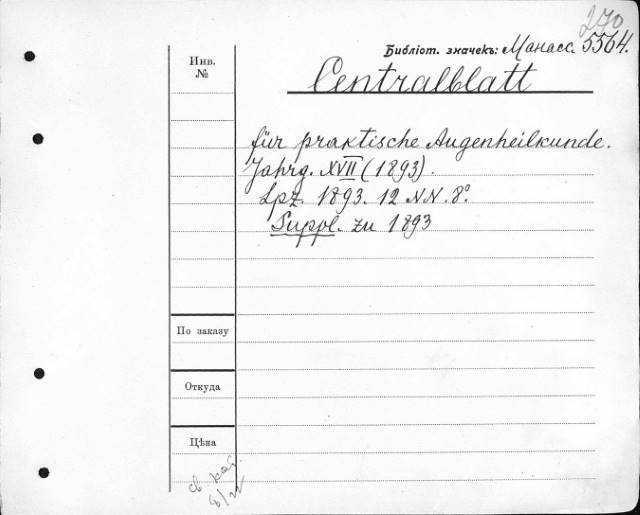 270
Библіот. значекъ: Манасс. 5564.
Инв. №
Centralblatt
für praktische Augenheilkunde.
Jahrg. XVII (1893).
Lpz. 1893. 12 NN. 8°
Suppl. zu 1893
По заказу
Откуда
Цѣна